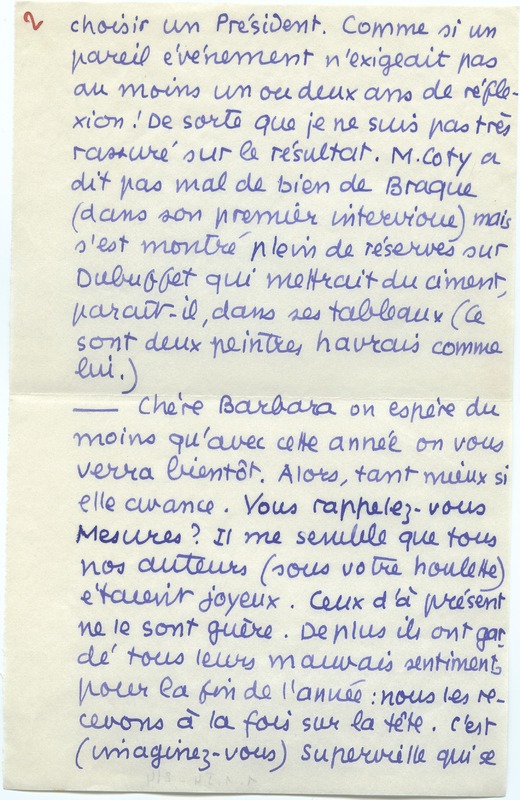 2
choisir un Président. Comme si un
pareil événement n'exigeait pas
au moins un ou deux ans de réfle-
xion! De sorte que je ne suis pas très
rassuré sur le résultat. M. Coty a
dit pas mal de bien de Braque
(dans son premier intervioue) mais
s'est montré plein de réserves sur
Dubuffet qui mettrait du ciment,
paraît-il, dans ses tableaux (Ce
sont deux peintres havrais comme
lui.)
— Chère Barbara on espère du
moins qu'avec cette année on vous
verra bientôt. Alors, tant mieux si
elle avance. Vous rappelez-vous
Mesures? Il me semble que tous
nos auteurs (sous votre houlette)
étaient joyeux. Ceux d'à présent
ne le sont guère. De plus ils ont gar-
dé tous leurs mauvais sentiments
pour la fin de l'année: nous les re-
cevons à la fois sur la tête. C'est
(imaginez-vous) Supervielle qui se